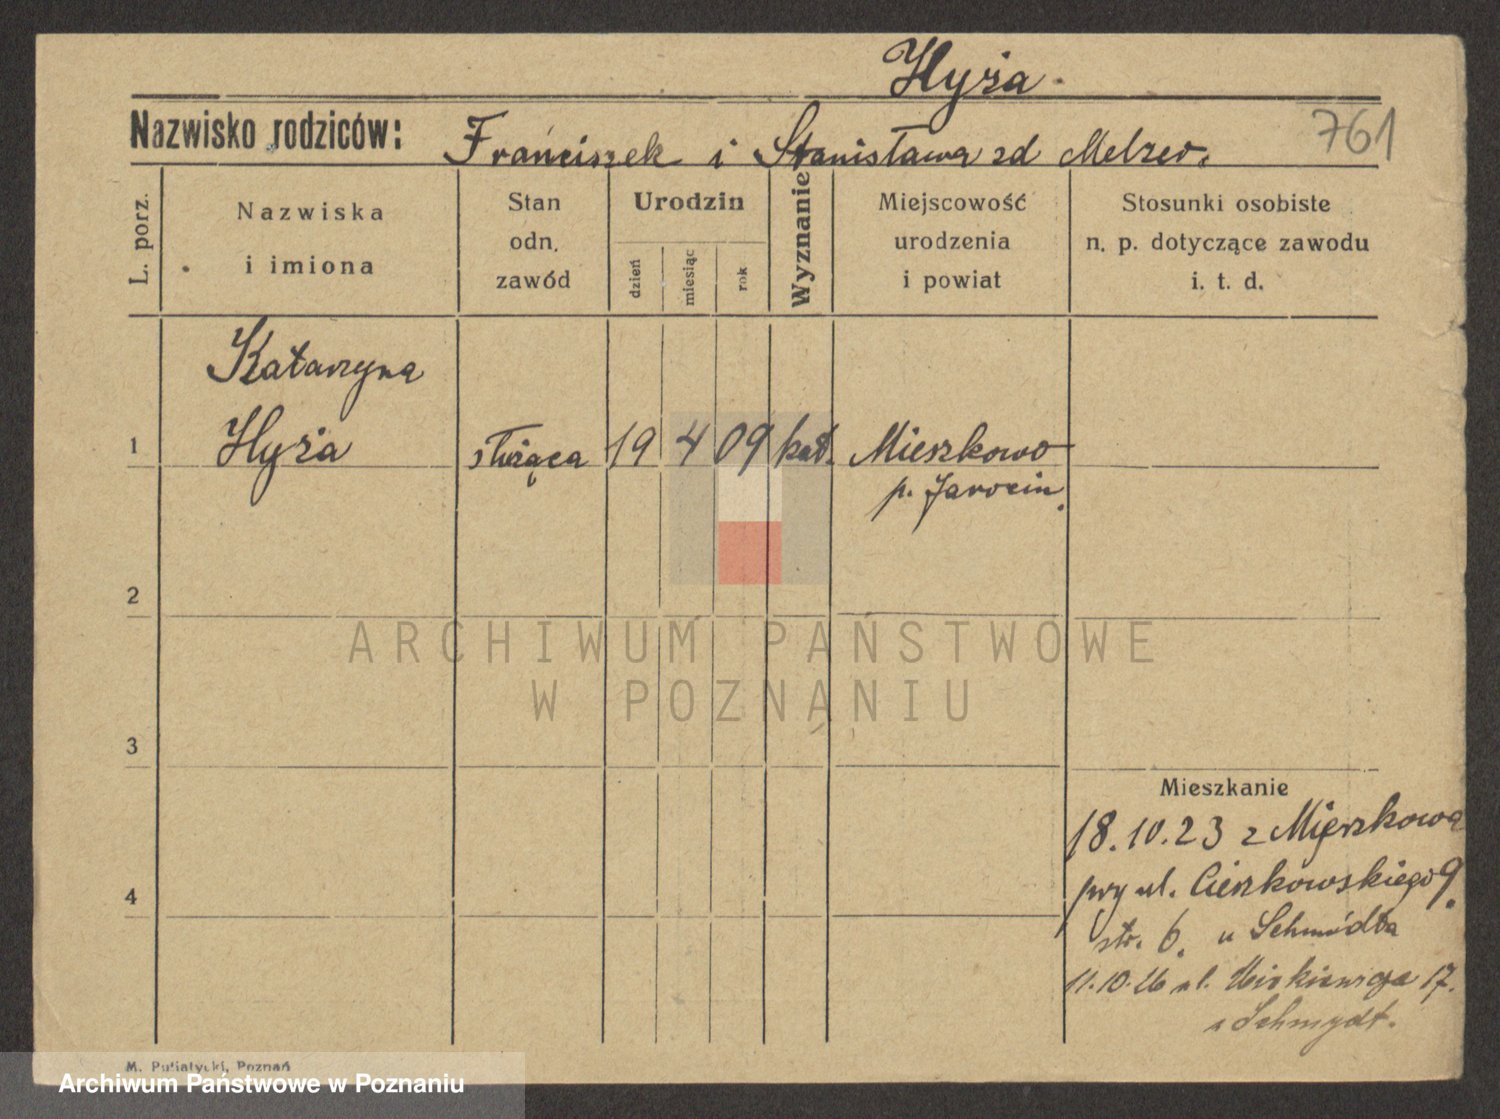 Hyża
Nazwisko rodziców: Franciszek i Stanisława zd Melzer.
761
L. porz.
Nazwiska
i imiona
Stan
odn.
zawód
Urodzin
dzień
miesiąc
rok
Wyznanie
Miejscowość
urodzenia
i powiat
Stosunki osobiste
n. p. dotyczące zawodu
i. t. d.
Katarzyna
1 Hyża służąca 19 4 09 kat. Mieszkowo
p. Jarocin.
2
ARCHIWUM PAŃSTWOWE
W POZNANIU
3
Mieszkanie
18.10.23 z Mieszkowa
4 przy ul. Cieszkowskiego 9.
str. 6. u Schmidta
11.10.26 ul. Mickiewicza 17.
Schmydt.
M. Putiatycki, Poznań
Archiwum Państwowe w Poznaniu